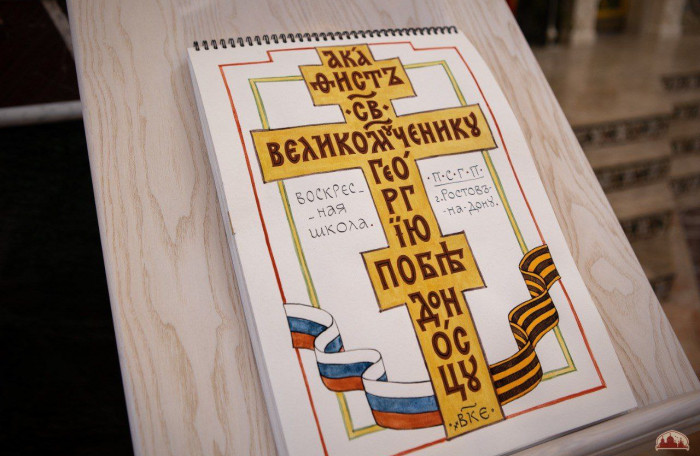 АКА́
ѲИСТЪ
СВ.
ВЕЛИКОМꙋЧЕНИКУ
ГЕО́
РГ
ІЮ
ПОБѢ
ДОН
О́С
ЦУ
ВОСКРЕС_
_НАЯ
ШКОЛА.
·П·С·Г·П·
г.РОСТОВЪ-
-НА-ДОНУ.
·҂ВК҃Є·